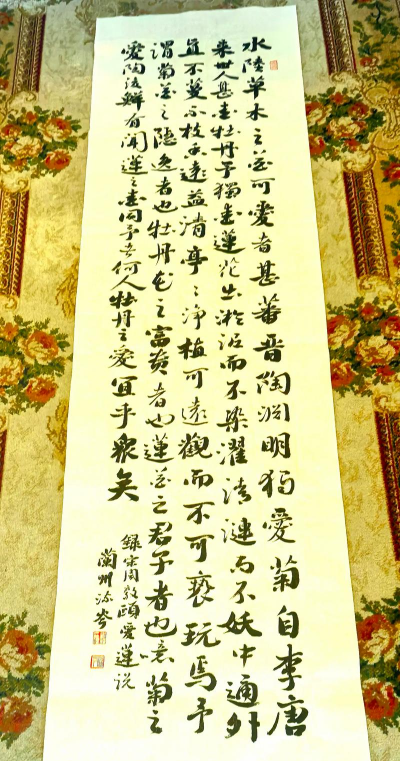 水陸草木之花可愛者甚蕃晋陶渊明独愛菊自李唐
来世人甚愛牡丹予獨愛蓮花出淤泥而不染濯清漣而不妖中通外
直不蔓不枝香遠益清亭〻净植可遠觀而不可褻玩焉予
謂菊花之隱逸者也牡丹花之富貴者也蓮花之君子者也噫菊之
愛陶後鮮有聞蓮之愛同予者何人牡丹之愛宜乎衆矣
錄宋周敦頤愛蓮説
蘭州